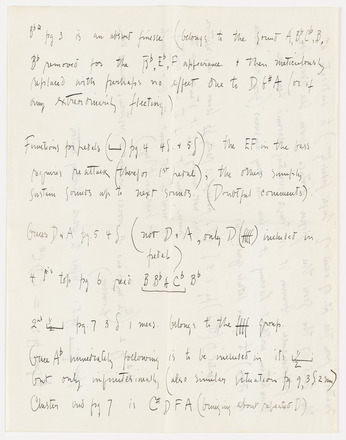 B♭ pg 3 is an absurd finesse (belongs to the sound A, B♭, C♭, B,
B♭ removed for the B♭, E♭, F appearance & then meticulously
replaced with perhaps no effect due to D, G# A (or if
any extraordinarily fleeting.)
Functions for pedals pg 4 4 & 5; the EF in the bass
requires reattack therefor 1st pedal), the others simply
sustain sounds up to next sounds. (Doubtful comments)
Grace D & A pg. 5 4 (not D & A, only D included in
pedal)
4 top pg 6 read B B♭ & C♭ B♭
2nd pg. 7 3 1 meas. belongs to the group.
Grace A♭ immediately following is to be included in its
but only infinitesimally (also similar situation pg 9, 3 2nd)
Cluster end pg 7 is C D F A (worrying about repeated D)